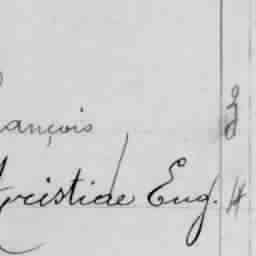 ançois
ristide Eug. H